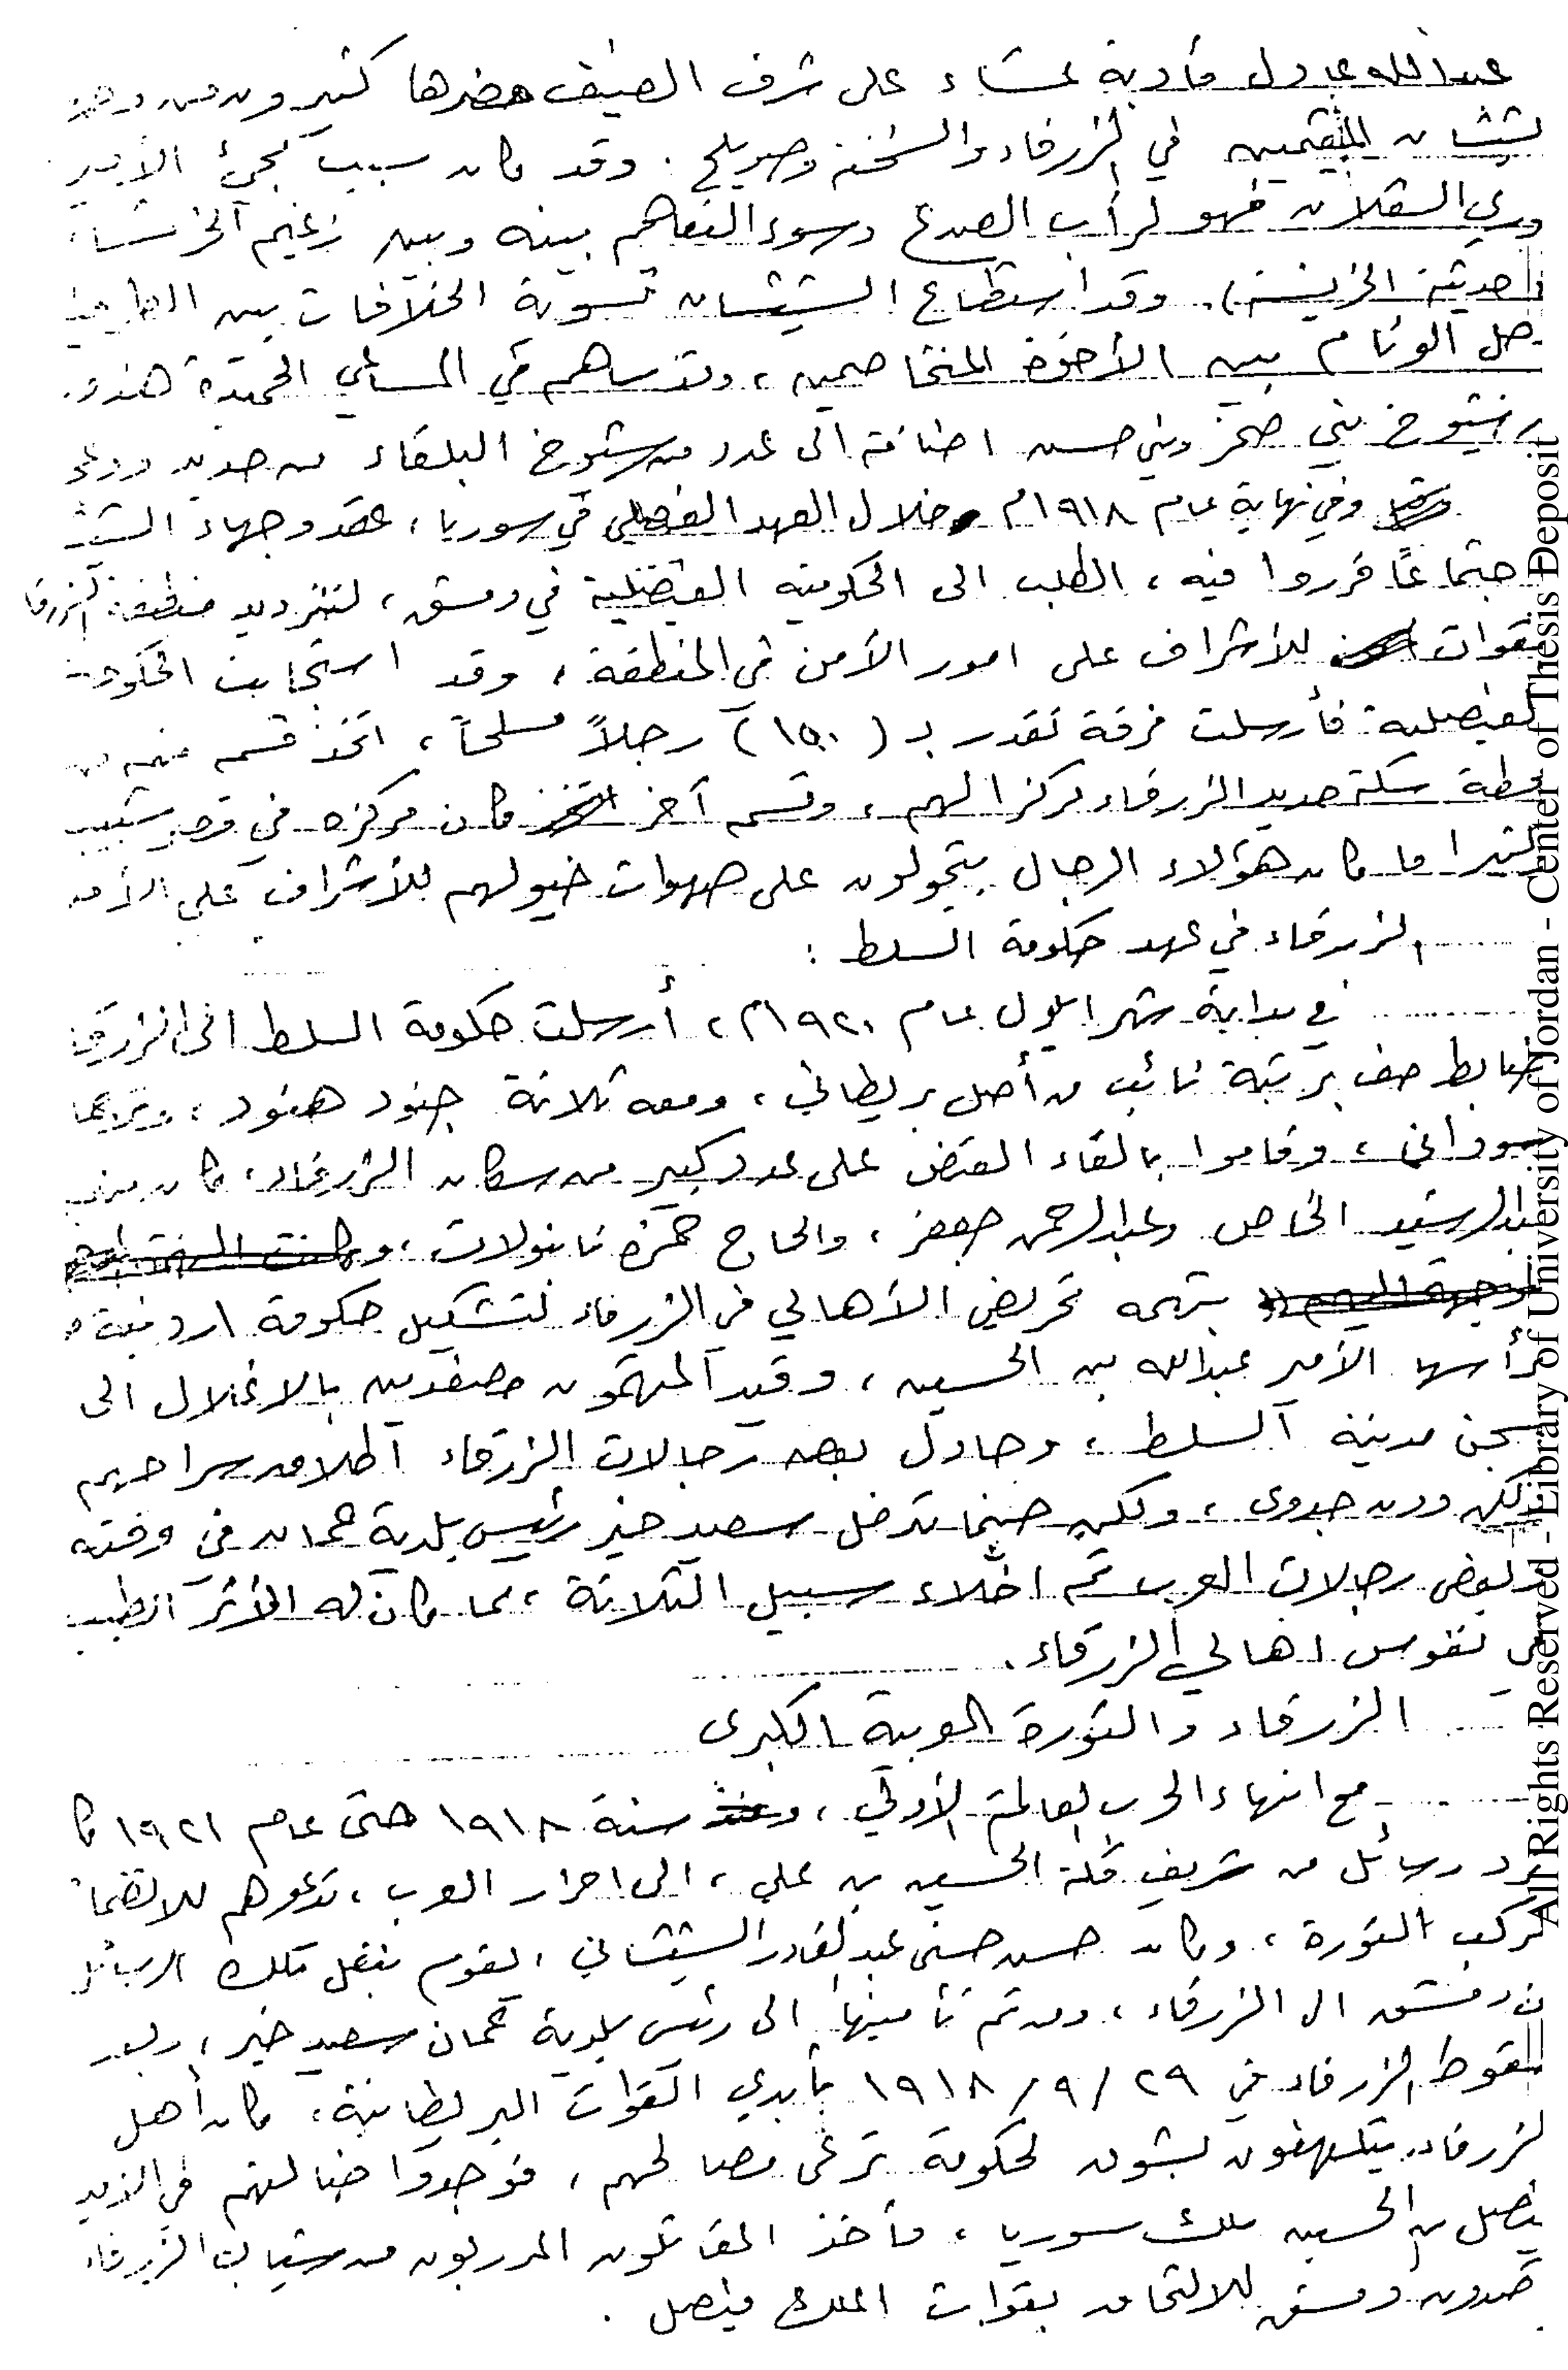 عبدالله عادل مأدبة عشاء على شرف الضيف حضرها كثيرون من
شيشان المقيمين في الزرقاء والسخنة وصويلح . وقد كان سبب مجيء الأمير
وري الشعلان فهو لرأب الصدع وسوء التفاهم بينه وبين زعيم آل خرشا،
(حديثة الخريشة). وقد استطاع الشيشان تسوية الخلافات بين
صل الوئام بين الأخوة المتخاصمين ، وقد ساهم في المساعي الحميدة هذه
شيوخ بني صخر وبني حسن اضافة الى عدد من شيوخ البلقاء من
وفي نهاية عام ١٩١٨م خلال العهد الفيصلي في سوريا ، عقد وجهاء الشيشـ
جتماعاً قرروا فيه ، الطلب الى الحكومة الفيصلية في دمشق ، لتزويد منطقة الزرقا
بقوات للأشراف على امور الأمن في المنطقة ، وقد استجابت الحكومة
لفيصلية فأرسلت فرقة تقدر بـ (١٥٠) رجلاً مسلحاً ، اتخذ قسم منهم من
محطة سكة حديد الزرقاء مركزا لهم ، وقسم آخر كان مركزه في قصر شبيب
كثيرا ما كان هؤلاء الرجال يتجولون على صهوات خيولهم للأشراف على الأمن
الزرقاء في عهد حكومة السلط :
في بداية شهر ايلول عام ١٩٢٠م ، أرسلت حكومة السلط الى الزرقا
ضابط صف برتبة نائب من أصل بريطاني ، ومعه ثلاثة جنود هنود ،
سوداني ، وقاموا بالقاء القبض على عدد كبير من سكان الزرقاء ، كان
عبدالرشيد الخاص وعبدالرحمن جعفر ، والحاج حمزة نانبولات ،
بتهمة تحريض الأهالي في الزرقاء لتشكيل حكومة اردنية
يرأسها الأمير عبدالله بن الحسين ، وقيد المتهمون مصفدين بالاغلال الى
سجن مدينة السلط ، وحاول بعض رجالات الزرقاء اطلاق سراحهم
ولكن دون جدوى ، ولكن حينما تدخل سعيد خير رئيس بلدية عمان في وقته
وبعض رجالات العرب تم اخلاء سبيل الثلاثة ، مما كان له الأثر الطيب
في نفوس اهالي الزرقاء .
الزرقاء والثورة العربية الكبرى
مع انتهاء الحرب العالمية الأولى ، سنة ١٩١٨ حتى عام ١٩٢١ كا
رد رسائل من شريف مكة الحسين بن علي ، الى احرار العرب ، تدعوهم للانضما
لركب الثورة ، وكان حسن حسني عبدالقادر الشيشاني ، يقوم بنقل تلك الرسائل
من دمشق الى الزرقاء ، ومن ثم تأمينها الى رئيس بلدية عمان سعيد خير ، وبعد
سقوط الزرقاء في ٢٩ /٩/ ١٩١٨ بأيدي القوات البريطانية ، كان أهل
لزرقاء يتلهفون بشوق لحكومة ترعى مصالحهم ، فوجدوا ضالتهم في الأمير
فيصل بن الحسين ملك سوريا ، فأخذ المقاتلون المدربون من شباب الزرقاء
قصدون دمشق للالتحاق بقوات الملك فيصل .
All Rights Reserved - Library of University of Jordan - Center of Thesis Deposit